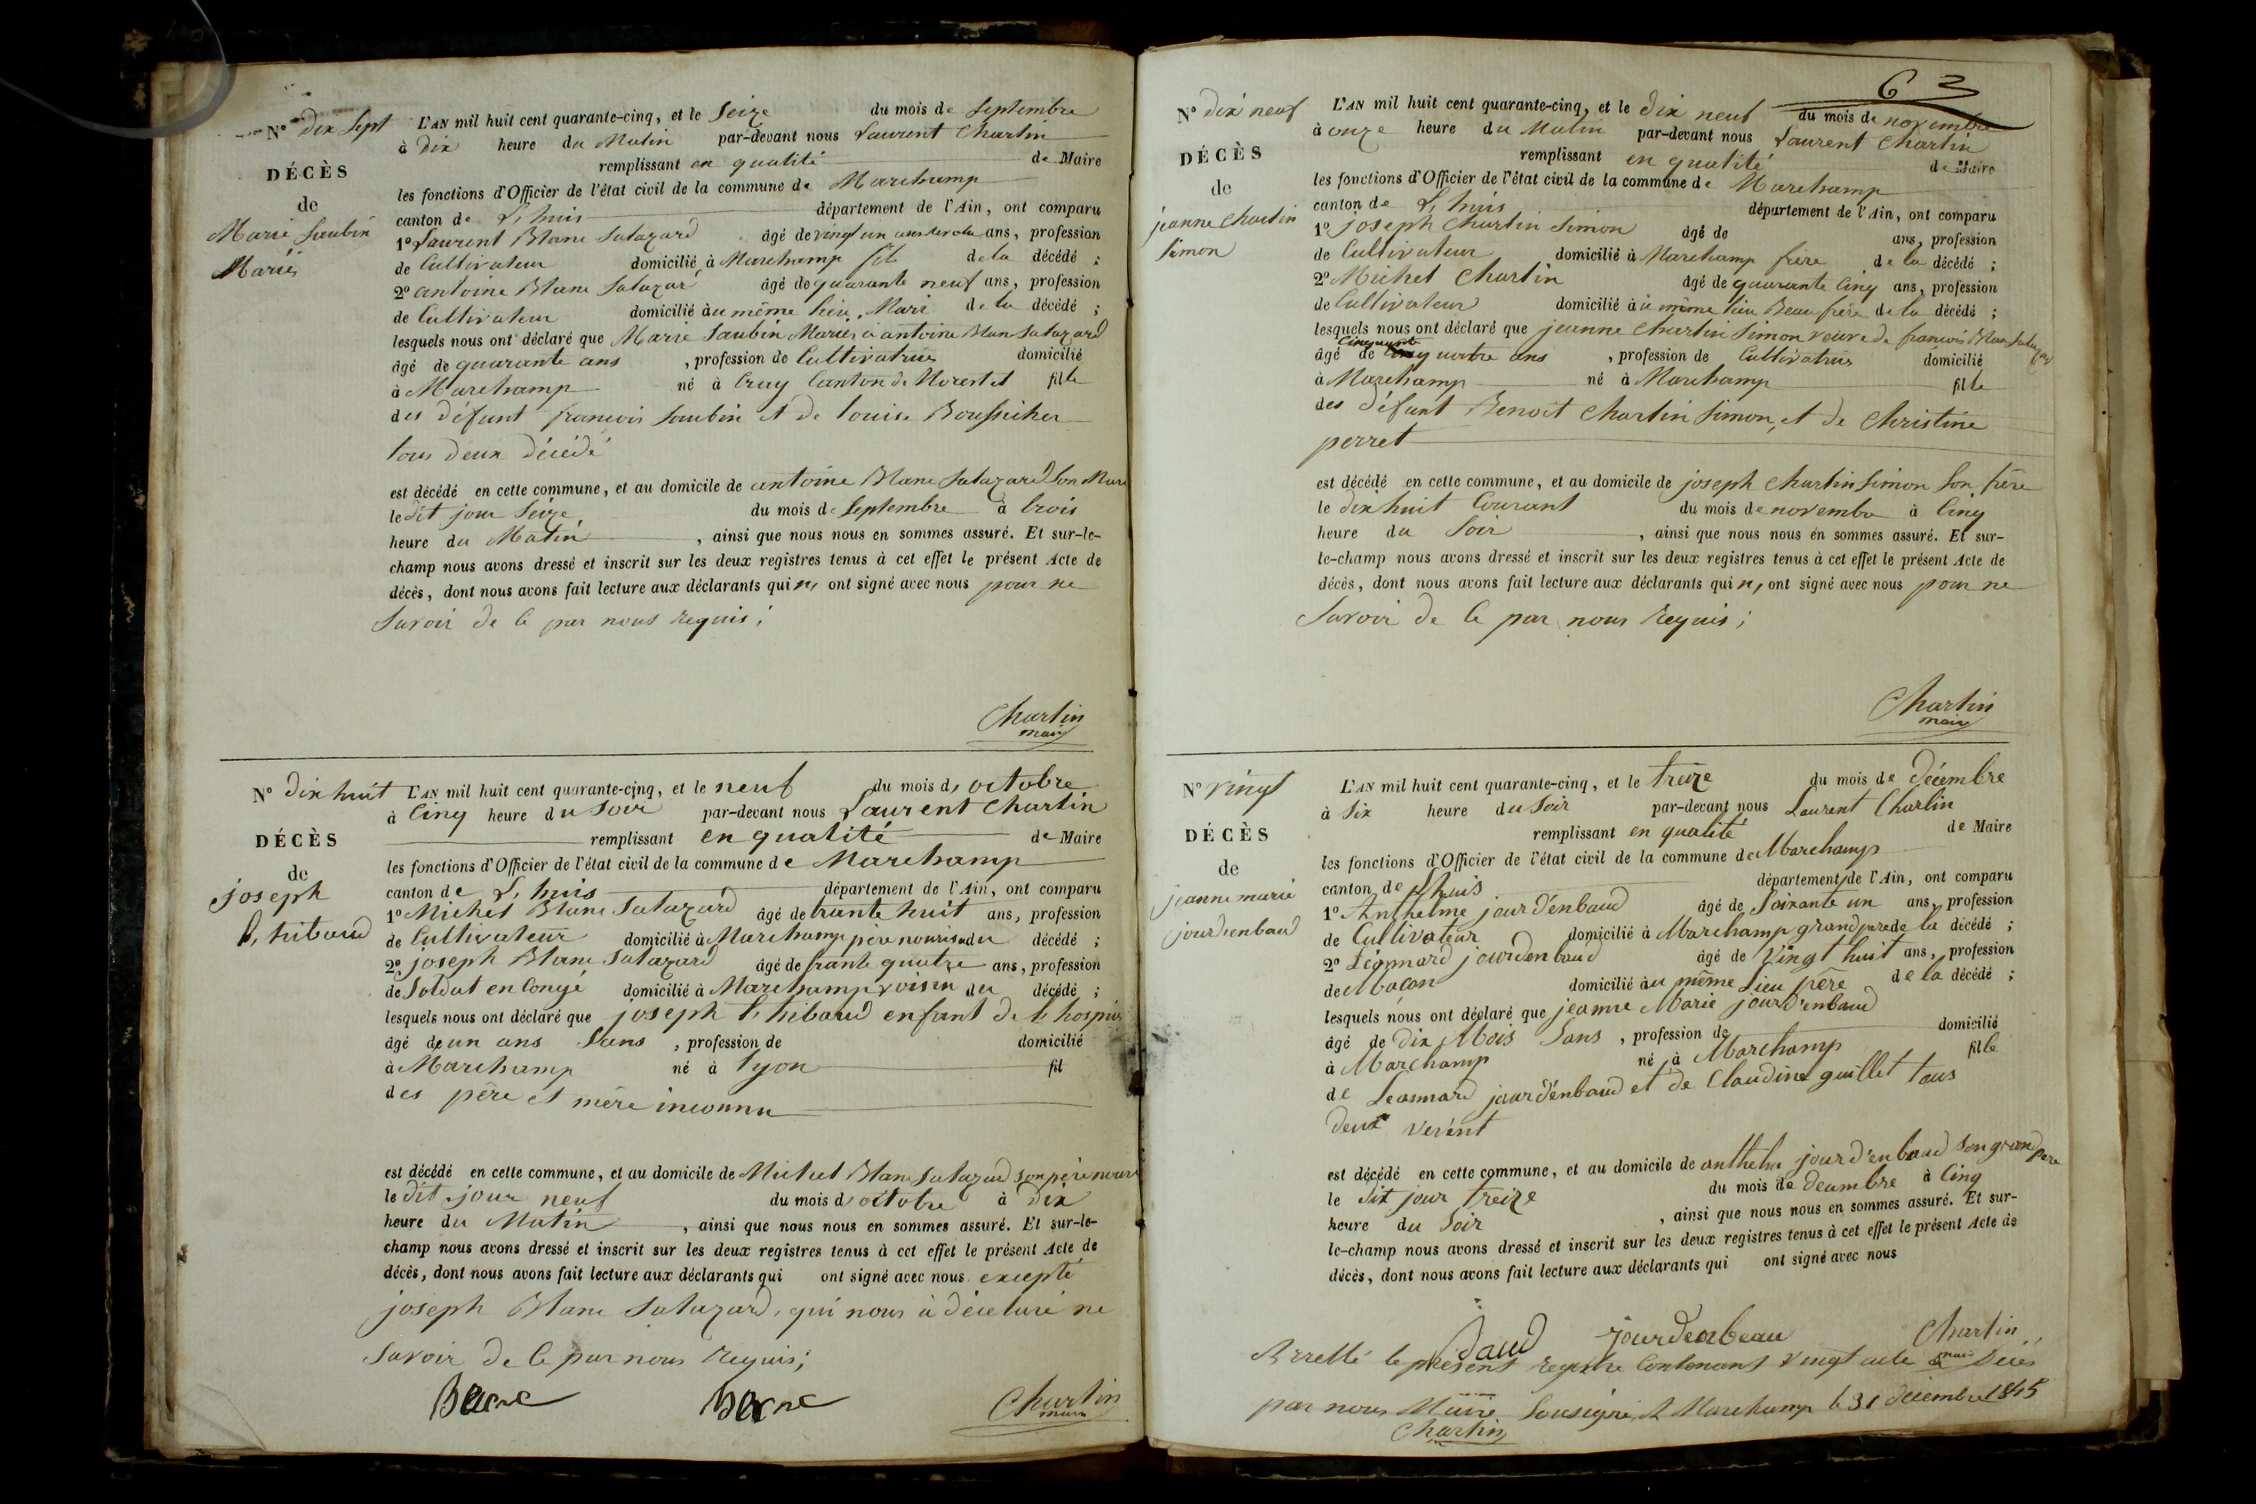 N° dix sept
DÉCÈS
de
Marie Saubin
Mariés
L'AN mil huit cent quarante-cinq, et le Seize du mois de Septembre
à dix heure du Matin par-devant nous Laurent Chartin
remplissant en qualité de Maire
les fonctions d'Officier de l'état civil de la commune de Marchamp
canton de L, huis département de l'Ain, ont comparu
1° Laurent Blanc Salazard âgé de vingt un ans, profession
de Cultivateur domicilié à Marchamp fils de la décédé ;
2° antoine Blanc Salazar âgé de quarante neuf ans, profession
de Cultivateur domicilié au même lieu, Mari de la décédé ;
lesquels nous ont déclaré que Marie Saubin Mariés à antoine Blan Salazard
âgé de quarante ans , profession de Cultivatrice domicilié
à Marchamp né à Cruy Canton de Morestel fille
des défunt francois Saubin et de louise
tous deux décédé
est décédé en cette commune, et au domicile de antoine Blanc Salazard Son Mari
le dit jour Seize du mois de Septembre à trois
heure du Matin , ainsi que nous nous en sommes assuré. Et sur-le-
champ nous avons dressé et inscrit sur les deux registres tenus à cet effet le présent Acte de
décès, dont nous avons fait lecture aux déclarants qui n, ont signé avec nous pour ne
Savoir de le par nous requis ;
Chartin
maire
N° dix huit
DÉCÈS
de
joseph
t, hibaud
L'AN mil huit cent quarante-cinq, et le neuf du mois d, octobre
à Cinq heure du Soir par-devant nous Laurent Chartin
remplissant en qualité de Maire
les fonctions d'Officier de l'état civil de la commune de Marchamp
canton de L, huis département de l'Ain, ont comparu
1° Michel Blanc Salazard âgé de trante huit ans, profession
de Cultivateur domicilié à Marchamp père nourisa du décédé ;
2° joseph Blanc Salazard âgé de trante quatre ans, profession
de Soldat en Congé domicilié à Marchamp voisin du décédé ;
lesquels nous ont déclaré que joseph t, hibaud enfant de le hospice
âgé de un ans Sans , profession de domicilié
à Marchamp né à lyon fil
des père et mère inconnu
est décédé en cette commune, et au domicile de Michel Blanc Salazard son père nouri
le dit jour neuf du mois d octobre à dix
heure du Matin , ainsi que nous nous en sommes assuré. Et sur-le-
champ nous avons dressé et inscrit sur les deux registres tenus à cet effet le présent Acte de
décès, dont nous avons fait lecture aux déclarants qui ont signé avec nous excepté
joseph Blanc Salazard, qui nous à déceluré ne
Savoir de le par nous requis ;
Chartin
maire
63
N° dix neuf
DÉCÈS
de
jeanne Chartin
Simon
L'AN mil huit cent quarante-cinq, et le dix neuf du mois de novembre
à onze heure du Matin par-devant nous Laurent Chartin
remplissant en qualité de Maire
les fonctions d'Officier de l'état civil de la commune de Marchamp
canton de L, huis département de l'Ain, ont comparu
1° joseph Chartin Simon âgé de ans, profession
de Cultivateur domicilié à Marchamp frère de la décédé ;
2° Michel Chartin âgé de quarante Cinq ans, profession
de Cultivateur domicilié à u même lieu Beau frère de la décédé ;
lesquels nous ont déclaré que jeanne Chartin Simon veuve de francois Blan Salazard
Cinquante
âgé de quatre ans , profession de Cultivatrice domicilié
à Marchamp né à Marchamp fille
des défunt Benoit Chartin Simon, et de Christine
perret
est décédé en cette commune, et au domicile de joseph Chartin Simon Son frère
le dix huit Courant du mois de novembre à Cinq
heure du Soir , ainsi que nous nous en sommes assuré. Et sur-
le-champ nous avons dressé et inscrit sur les deux registres tenus à cet effet le présent Acte de
décès, dont nous avons fait lecture aux déclarants qui n, ont signé avec nous pour ne
Savoir de le par nous requis ;
Chartin
maire
N° vingt
DÉCÈS
de
jeanne marie
jourdenbaud
L'AN mil huit cent quarante-cinq, et le treize du mois de décembre
à Six heure du Soir par-devant nous Laurent Chartin
remplissant en qualité de Maire
les fonctions d'Officier de l'état civil de la commune de Marchamp
canton de Lhuis département de l'Ain, ont comparu
1° Anthelme jourd'enbaud âgé de Soixante un ans, profession
de Cultivateur domicilié à Marchamp grand père de la décédé ;
2° Léonnard jourdenbaud âgé de vingt huit ans, profession
de Maçon domicilié au même Lieu père de la décédé ;
lesquels nous ont déclaré que jeanne Marie jourd'enbaud
âgé de dix Mois Sans , profession de domicilié
à Marchamp né à Marchamp fille
de Leonnard jourd'enbaud et de Claudine guillet tous
deux
est décédé en cette commune, et au domicile de anthelm jourd'enbaud son grand père
le dit jour treize du mois de decembre à Cinq
heure du Soir , ainsi que nous nous en sommes assuré. Et sur-
le-champ nous avons dressé et inscrit sur les deux registres tenus à cet effet le présent Acte de
décès, dont nous avons fait lecture aux déclarants qui ont signé avec nous
jourdenbeau Chartin
maire
Arrellé le présent registre Contenant vingt acte de Décès
par nous Maire Sousigné, A Marchamp le 31 décembre 1845
Chartin